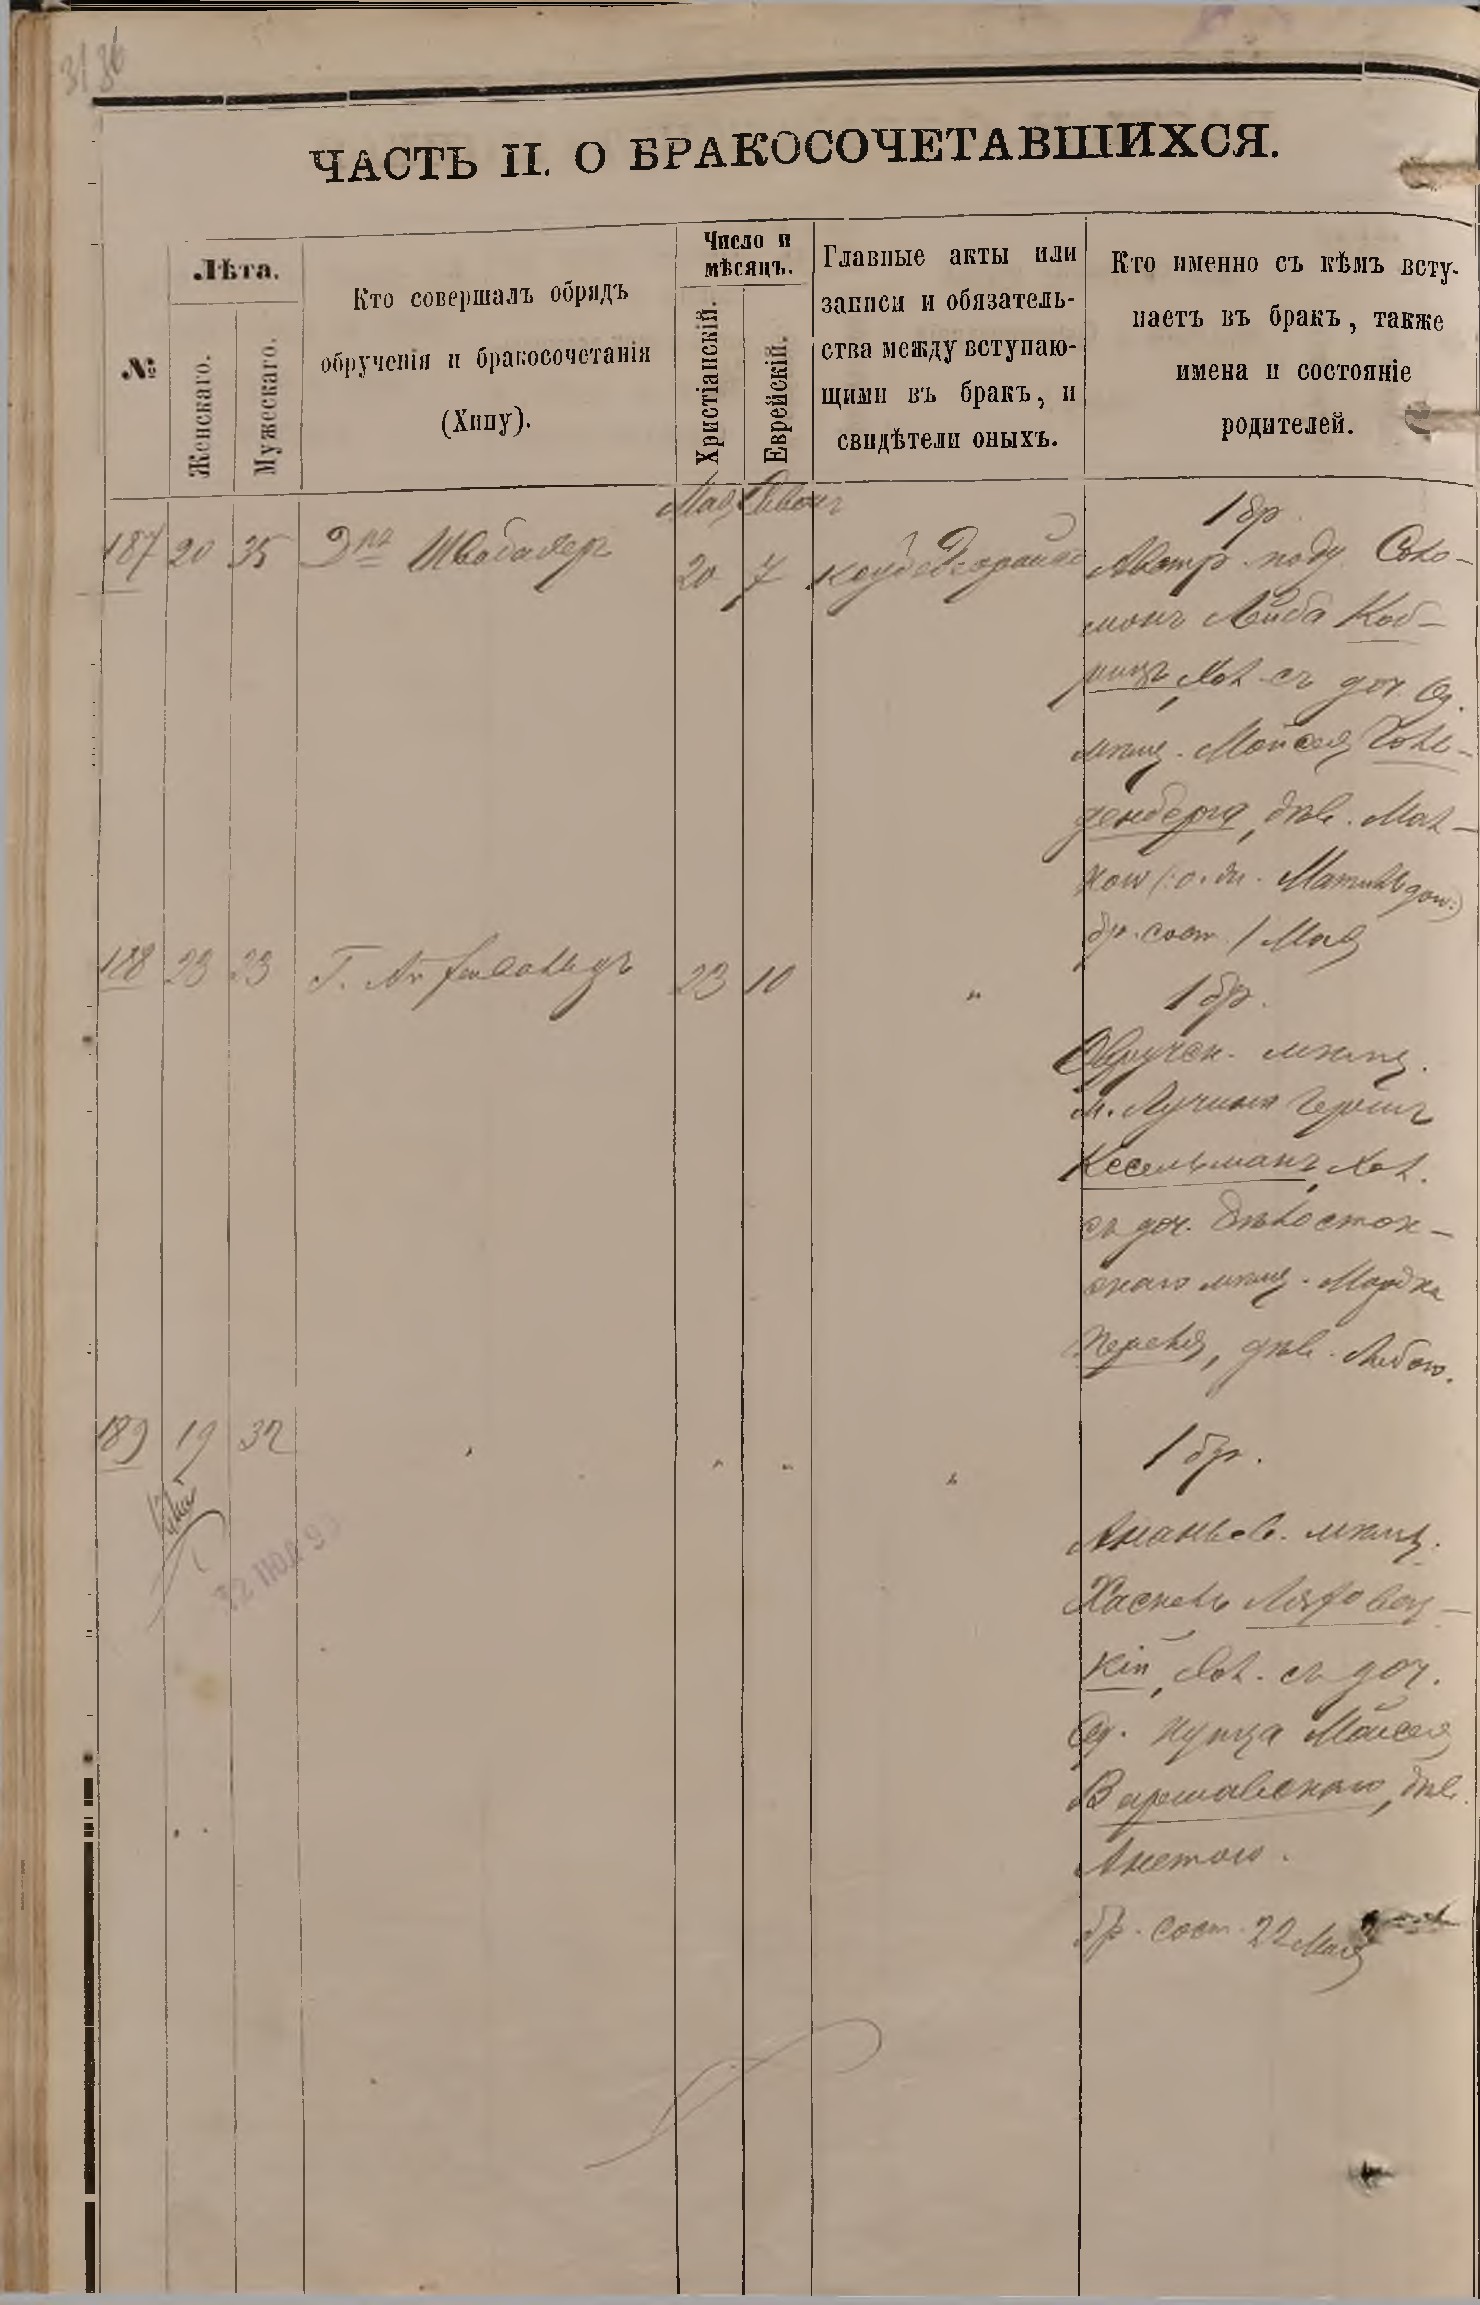 31 36
ЧАСТЬ II. О БРАКОСОЧЕТАВШИХСЯ.
№
Лѣта.
Женскаго.
Мужескаго.
Кто совершалъ обрядъ
обрученія и бракосочетанія
(Хипу).
Число и
мѣсяцъ.
Христіанскій.
Еврейскій.
Главные акты или
записи и обязатель-
ства между вступаю-
щими въ бракъ, и
свидѣтели оныхъ.
Кто именно съ кѣмъ всту-
паетъ въ бракъ, также
имена и состояніе
родителей.
Мая Сиванъ
187 20 35 Д-ръ Швабахеръ 20 7
1 бр.
Австр. подд. Соло-
монъ Лейба Коб-
ринъ, хол. съ доч. Од.
мѣщ. Мойсея Голь-
денберга, дѣв. Мал-
кою (: о. д. Матильдою:)
бр. сост. 1 Мая
188 23 23 Г. 23 10 "
1 бр.
Овручск. мѣщ.
м. Лучина Гершъ
Кесельманъ, хол.
съ доч. Бѣлосток-
скаго мѣщ. Мордка
Переля, дѣв. Либою.
189 19 32 " " " "
1 бр.
Ананьев. мѣщ.
Хаскель Ляховец-
кій, хол. съ доч.
Од. купца Мойсея
Варшавскаго, дѣв.
Анетою.
бр. сост. 22 Мая